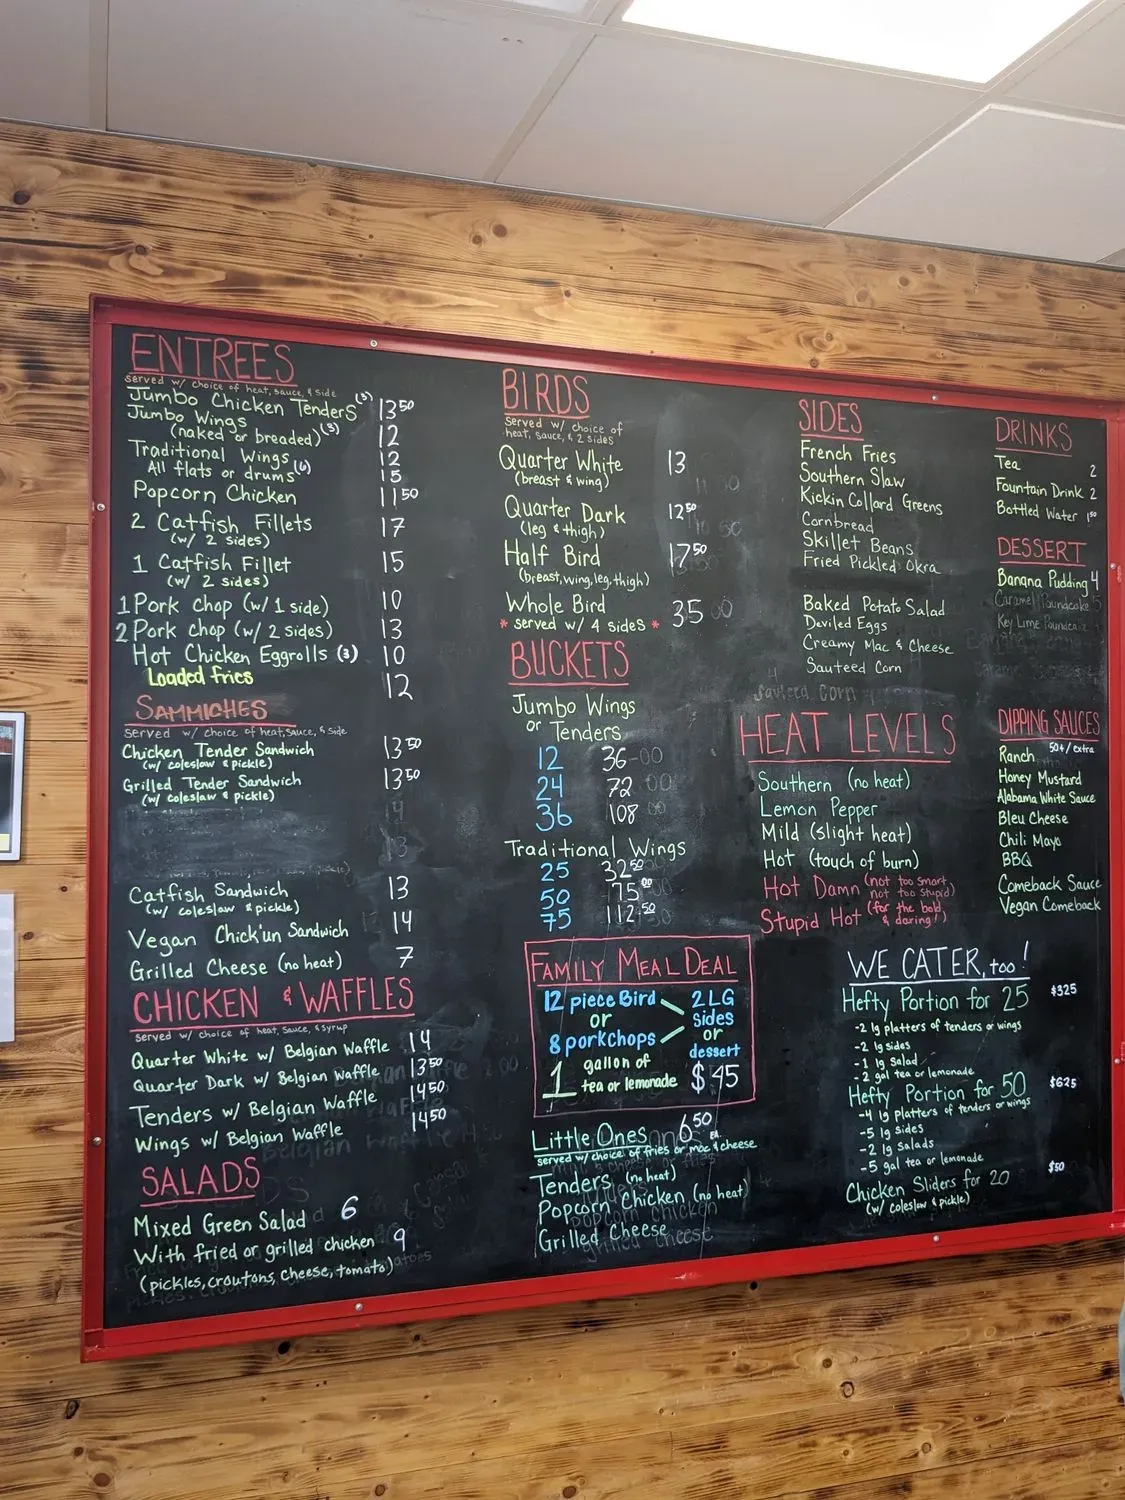 ENTREES
served w/ choice of heat, sauce, & side
Jumbo Chicken Tenders (3) 13 50
Jumbo Wings
(naked or breaded) (3) 12
Traditional Wings 12
All flats or drums (6) 15
Popcorn Chicken 11 50
2 Catfish Fillets 17
(w/ 2 sides)
1 Catfish Fillet 15
(w/ 2 sides)
1 Pork chop (w/ 1 side) 10
2 Pork chop (w/ 2 sides) 13
Hot Chicken Eggrolls (3) 10
Loaded fries 12
SAMMICHES
Served w/ choice of heat, sauce, & side
Chicken Tender Sandwich 13 50
(w/ coleslaw & pickle)
Grilled Tender Sandwich 13 50
(w/ coleslaw & pickle)
Catfish Sandwich 13
(w/ coleslaw & pickle)
Vegan Chick'un Sandwich 14
Grilled Cheese (no heat) 7
CHICKEN & WAFFLES
served w/ choice of heat, sauce, & syrup
Quarter White w/ Belgian Waffle 14
Quarter Dark w/ Belgian Waffle 13 50
Tenders w/ Belgian Waffle 14 50
Wings w/ Belgian Waffle 14 50
SALADS
Mixed Green Salad 6
With fried or grilled chicken 9
(pickles, croutons, cheese, tomato)
BIRDS
Served w/ choice of
heat, sauce, & 2 sides
Quarter White 13
(breast & wing)
Quarter Dark 12 50
(leg & thigh)
Half Bird 17 50
(breast, wing, leg, thigh)
Whole Bird 35
* served w/ 4 sides *
BUCKETS
Jumbo Wings
or Tenders
12 36
24 72
36 108
Traditional Wings
25 32 50
50 75 00
75 112 50
FAMILY MEAL DEAL
12 piece Bird
or
8 porkchops
2 LG
sides
or
dessert
1 gallon of
tea or lemonade
$45
Little Ones 6 50 ea.
served w/ choice of fries or mac & cheese
Tenders (no heat)
Popcorn Chicken (no heat)
Grilled Cheese
SIDES
French Fries
Southern Slaw
Kickin Collard Greens
Cornbread
Skillet Beans
Fried Pickled Okra
Baked Potato Salad
Deviled Eggs
Creamy Mac & Cheese
Sauteed Corn
HEAT LEVELS
Southern (no heat)
Lemon Pepper
Mild (slight heat)
Hot (touch of burn)
Hot Damn (not too smart
not too stupid)
Stupid Hot (for the bold
& daring!)
DRINKS
Tea 2
Fountain Drink 2
Bottled Water 1 50
DESSERT
Banana Pudding 4
Caramel Poundcake 5
Key Lime Poundcake
DIPPING SAUCES
50¢/extra
Ranch
Honey Mustard
Alabama White Sauce
Bleu Cheese
Chili Mayo
BBQ
Comeback Sauce
Vegan Comeback
WE CATER, too!
Hefty Portion for 25 $325
-2 lg platters of tenders or wings
-2 lg sides
-1 lg salad
-2 gal tea or lemonade
Hefty Portion for 50 $625
-4 lg platters of tenders or wings
-5 lg sides
-2 lg salads
-5 gal tea or lemonade
Chicken Sliders for 20 $50
(w/ coleslaw & pickle)